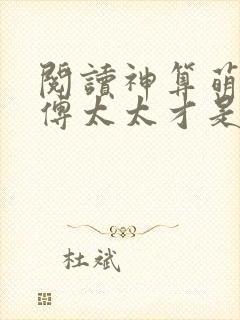 閱讀神算萌
傅太太才是
杜斌